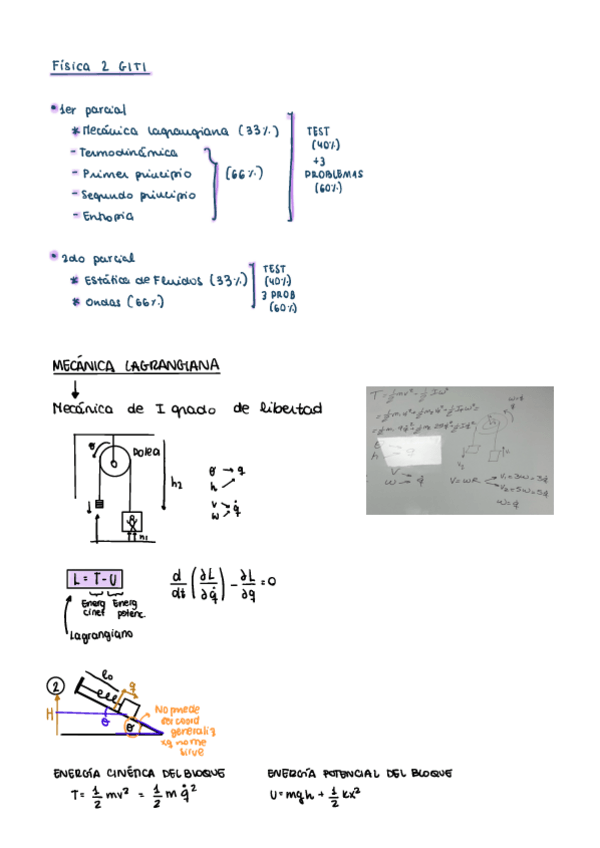 Física 2 GITI
1er parcial
* Mecánica lagrangiana (33%)
- Termodinámica
- Primer principio
- Segundo principio
- Entropía
(66%)
TEST
(40%)
+3
PROBLEMAS
(60%)
2do parcial
* Estática de Fluidos (33%)
* Ondas (66%)
TEST
(40%)
3 PROB
(60%)
MECÁNICA LAGRANGIANA
Mecánica de I grado de libertad
θ
Polea
h2
h1
θ → q
h
v → q̇
ω
V = ωR
V₁ = 3ω = 3q̇
V₂ = 5ω = 5q̇
ω = q̇
L = T - U
Energ cinet
Energ potenc.
Lagrangiano
d/dt (∂L/∂q̇) - ∂L/∂q = 0
2
l₀
q
H
θ
θ
No puede
ser coord
generaliz
xq no me
sirve
ENERGÍA CINÉTICA DEL BLOQUE
T = 1/2 mv² = 1/2 m q̇²
ENERGÍA POTENCIAL DEL BLOQUE
U = mgh + 1/2 kx²